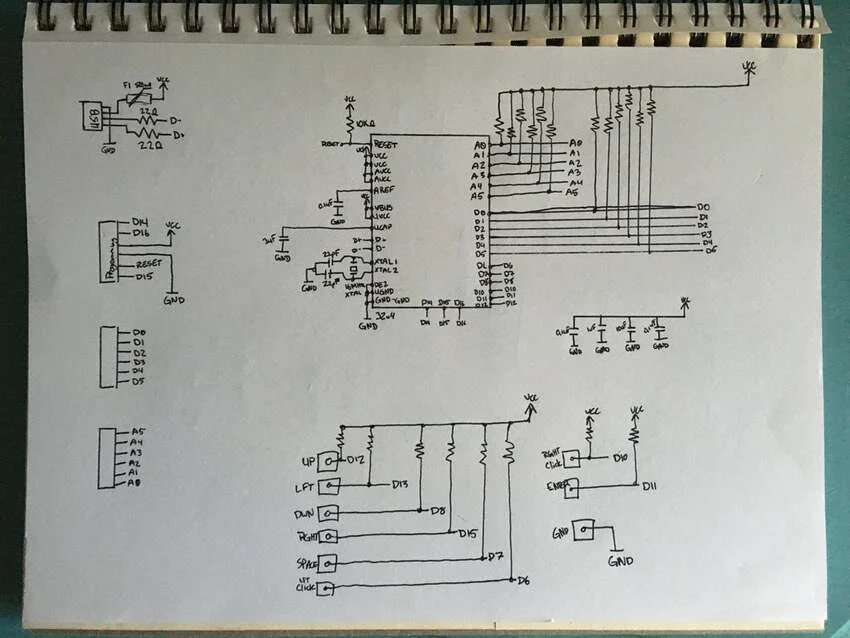 F1 500mA VCC
USB
22Ω D-
D+
22Ω
GND
VCC
10KΩ
RESET
RESET
VCC
VCC
AVCC
AVCC
AREF
0.1uF
GND
VBUS
UVCC
UCAP
1uF
GND
D+ D+
D- D-
22pF
XTAL1
XTAL2
22pF
GND
16MHz
XTAL
UGND
GND-GND
GND
32u4
VCC
A0 A0
A1 A1
A2 A2
A3 A3
A4 A4
A5 A5
D0 D0
D1 D1
D2 D2
D3 D3
D4 D4
D5
D6
D7 D7
D8 D8
D10 D10
D11 D11
D12 D12
D14 D15 D16
D14 D15
Programming
D14
D16
VCC
RESET
D15
GND
D0
D1
D2
D3
D4
D5
A5
A4
A3
A2
A1
A0
VCC
0.1uF 1uF 10uF 0.1uF
GND GND GND GND
VCC
UP D12
LFT D13
DWN D8
RGHT D15
SPACE D7
LFT
CLICK D6
VCC VCC
RGHT
CLICK D10
ENTER D11
GND
GND